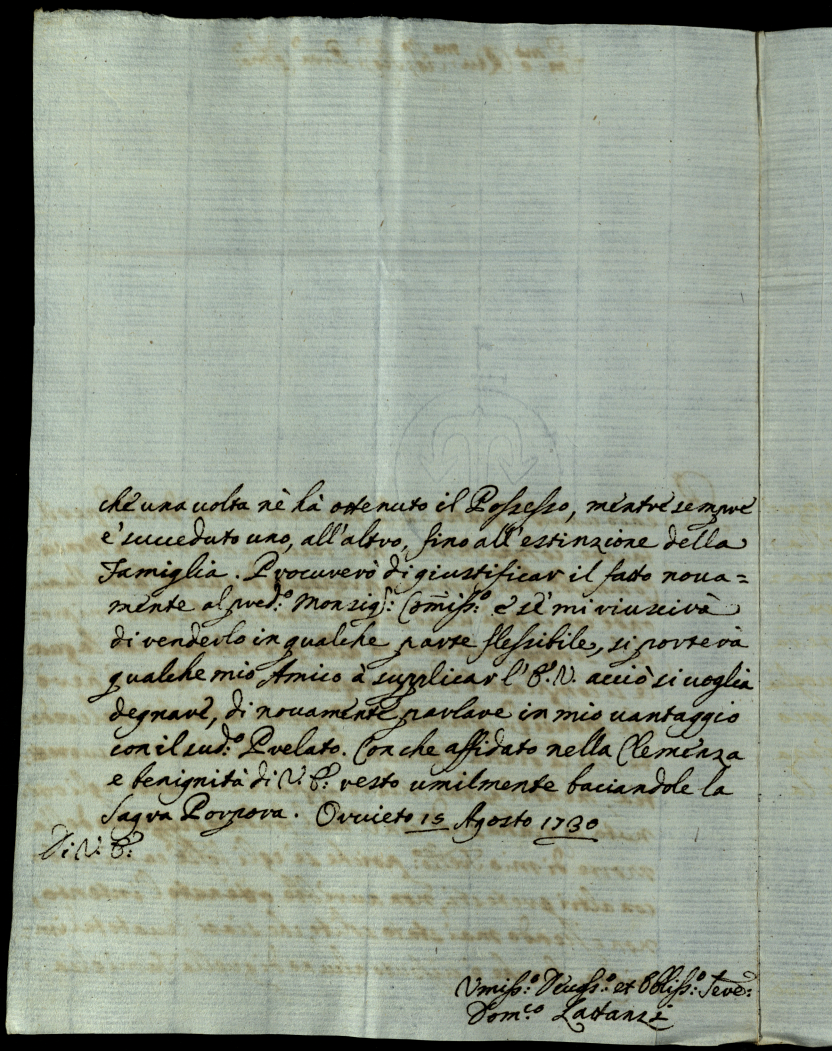 che una volta nè hà ottenuto il Possesso, mentre sempre
è succeduto uno, all'altro, fino all'estinzione della
Famiglia. Procurerò di giustificar il fatto nova=
mente al pred:º Monsig:r Comiss:º e se mi riuscirà
di renderlo in qualche parte flessibile, si porterà
qualche mio Amico à supplicar l'E.V. acciò si voglia
degnare, di novamente parlare in mio vantaggio
con il sud:º Prelato. Con che affidato nella Clemenza
e benignità di V.E. resto umilmente baciandole la
Sagra Porpora. Orvieto 15 Agosto 1730
Di V.E.
Umiss:º Devss:º et Obliss:º Serv:e
Dom:co Lattanzi